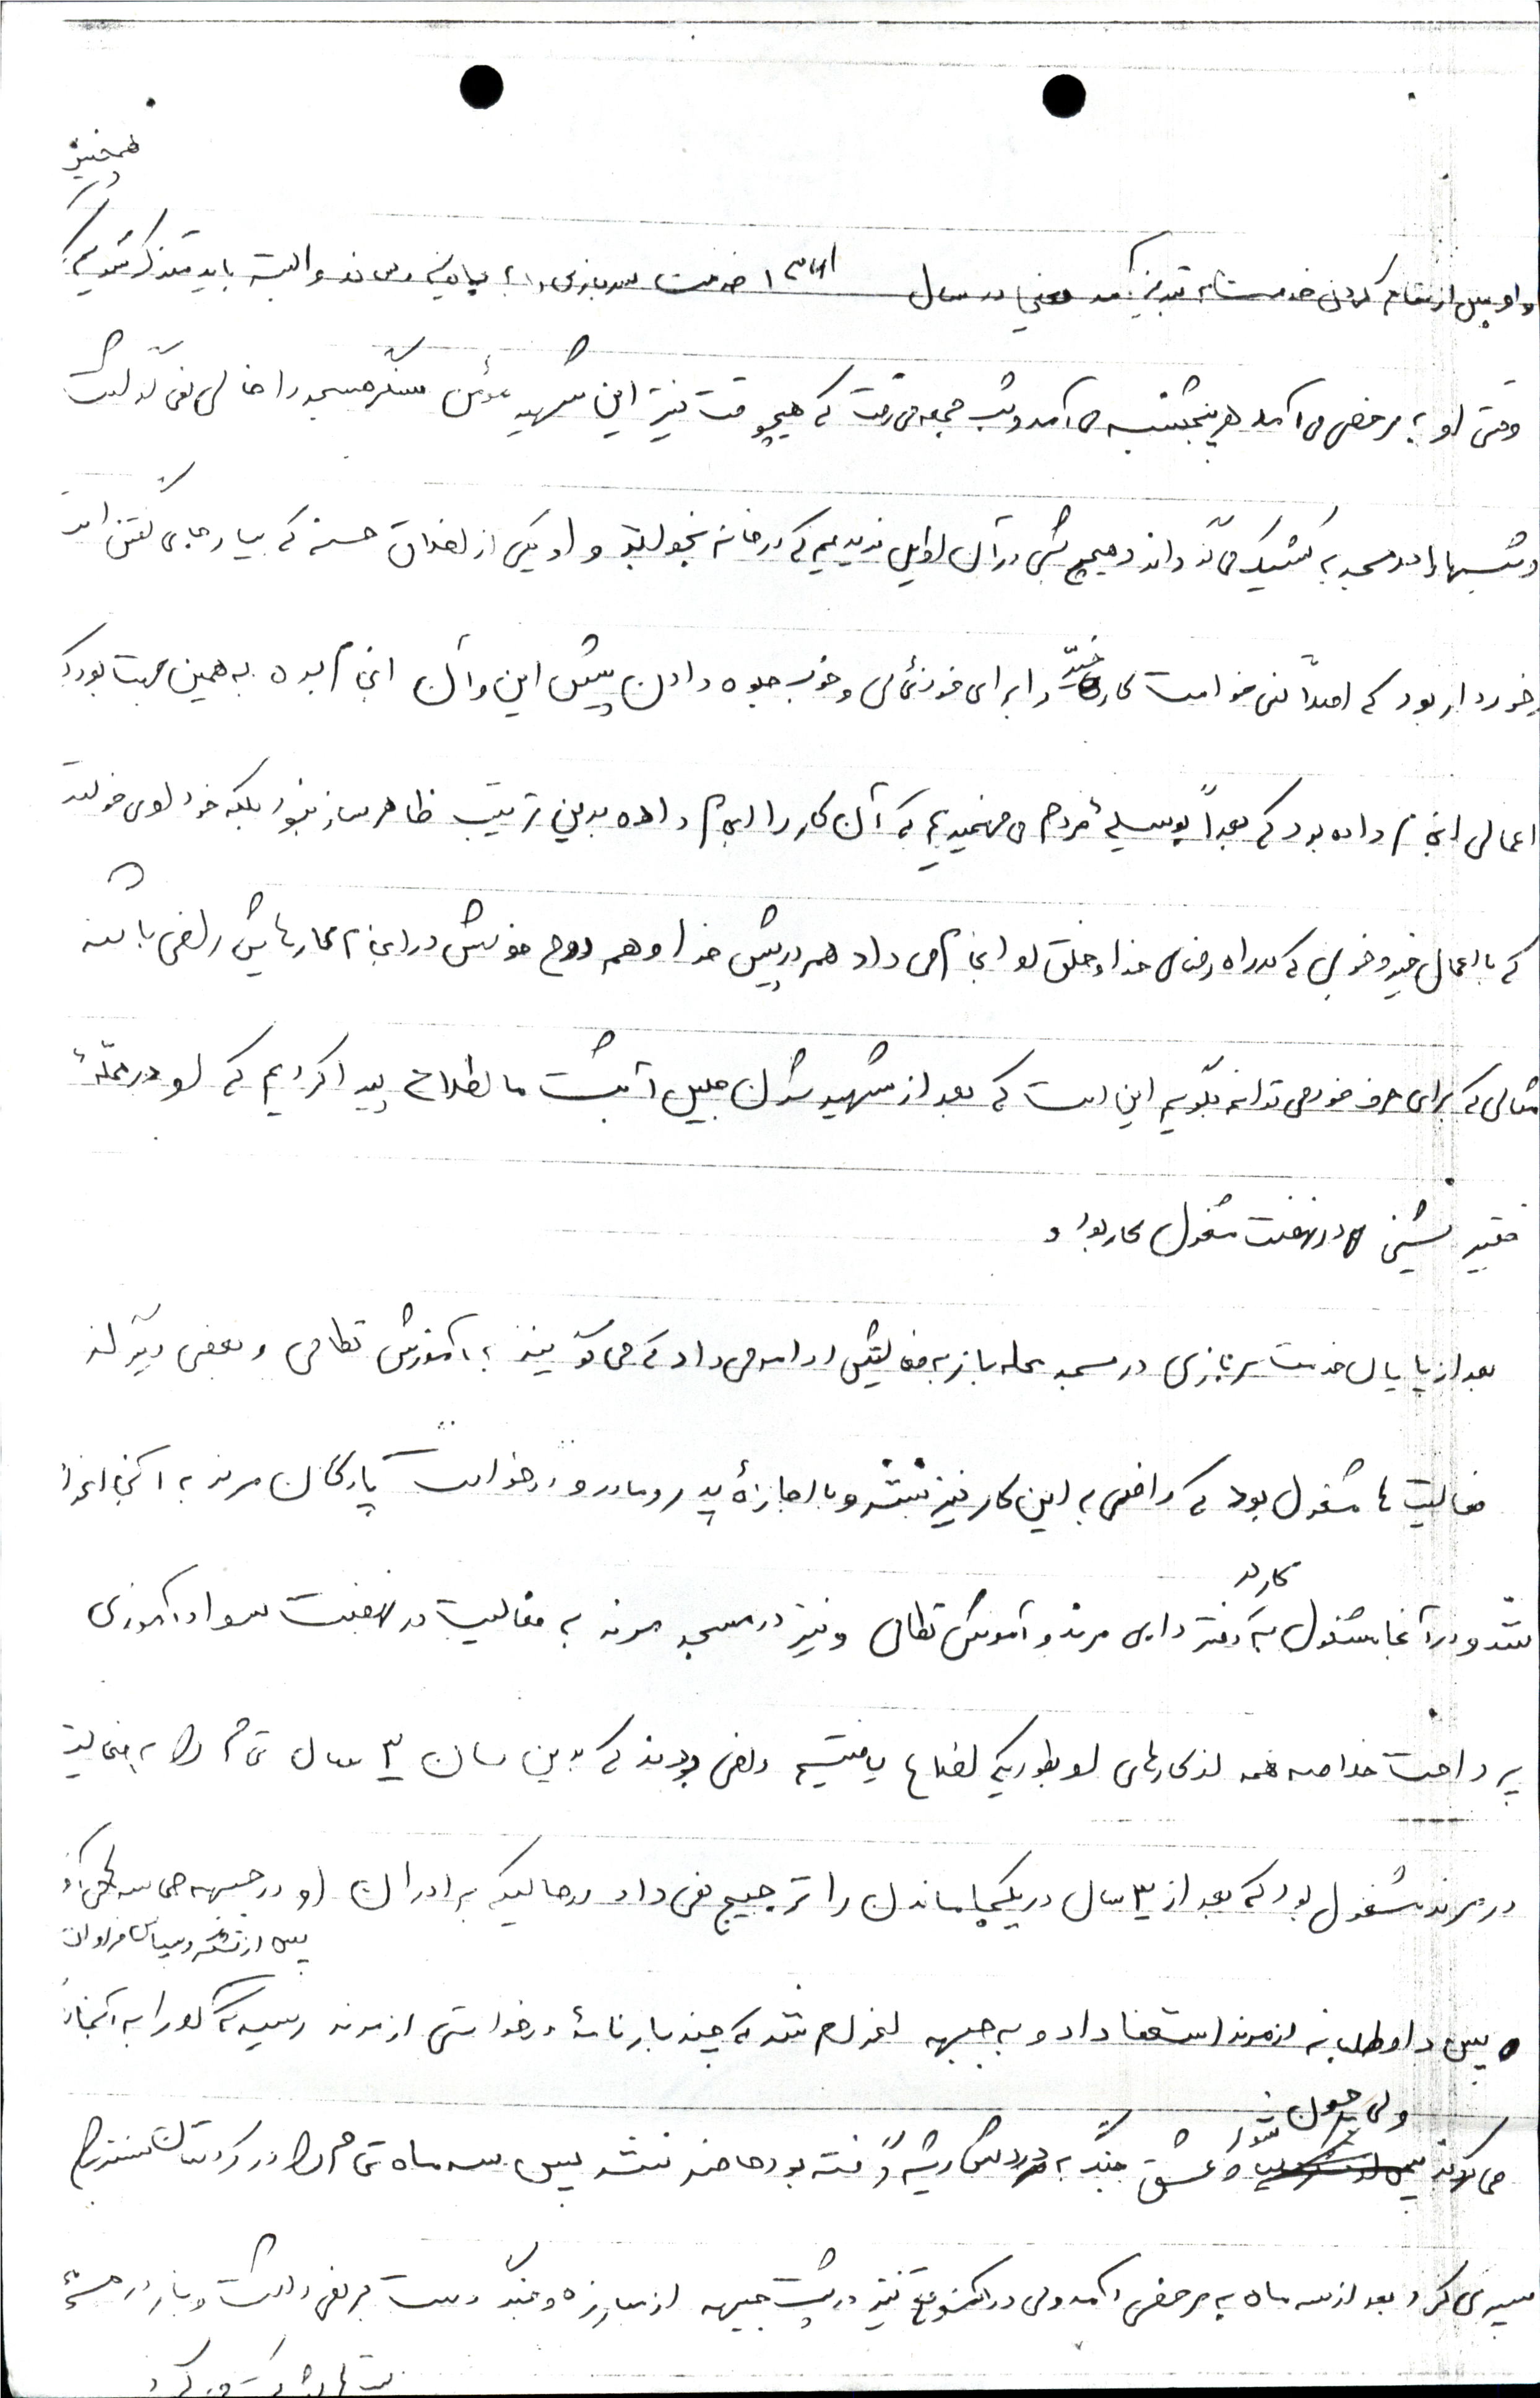 همچنین
و او پس از تمام کردن خدمت به تبریز آمد یعنی در سال ۱۳۶۱ خدمت سربازی را به پایان رساند و البته باید متذکر شویم که
وقتی او به مرخصی می آمد هر پنجشنبه می آمد و شب جمعه می رفت که هیچوقت نیز این شهید مؤمن سنگر مسجد را خالی نمی گذاشت
و شبها را در مسجد به کشیک می گذراند و هیچ شبی در آن اوایل ندیدیم که در خانه بخوابد و او یکی از اخلاق حسنه که بسیار جای گفتن است
برخوردار بود که اصلاً نمی خواست کار خیر را برای خودنمائی و خوب جلوه دادن پیش این و آن انجام بده به همین جهت بود که
اعمالی انجام داده بود که بعداً بوسیلۀ مردم می فهمیدیم که آن کار را انجام داده بدین ترتیب ظاهرساز نبود بلکه خود او می خواست
که با اعمال خیر و خوبی که در راه رضای خدا و خلق او انجام می داد هم در پیش خدا و هم روح خویش در انجام کارهایش راضی باشند
مثالی که برای حرف خود می توانم بگویم این است که بعد از شهید شدن جلیل آتبشت ما اطلاع پیدا کردیم که او در محلۀ
فقیر نشین در نهضت مشغول بکار بود و
بعد از پایان خدمت سربازی در مسجد محله باز به فعالیتش ادامه می داد که می گویند به آموزش نظامی و بعضی دیگر از
فعالیت ها مشغول بود که راضی به این کار نیز نبشد و با اجازۀ پدر و مادر و درخواست پادگان مرند به آنجا اعزام
کار در
شد و در آنجا مشغول به دفتر دایی مرند و آموزش نظامی و نیز در مسجد مرند به فعالیت در نهضت سوادآموزی
پرداخت خداصه همه از کارهای او بطوریکه اطلاع یافتیم راضی بودند که بدین سان ۳ سال تمام را به فعالیت
در مرند مشغول بود که بعد از ۳ سال در یکجا ماندن را ترجیح نمی داد در حالیکه برادران او در جبهه می جنگیدند
پس از تشکر و سپاس فراوان
پس داوطلبانه از مرند استعفا داد و به جبهه اعزام شد که چند بار نامۀ درخواستی از مرند رسید که او را به آنجا
ولی چون شور
می خواندند و عشق جنگ در دلش ریشه گرفته بود حاضر نشد پس سه ماه تمام را در کردستان سنندج
سپری کرد بعد از سه ماه به مرخصی آمد ولی در آن موقع نیز در پشت جبهه از مبارزه و جنگ دست بر نمی داشت و باز در همه